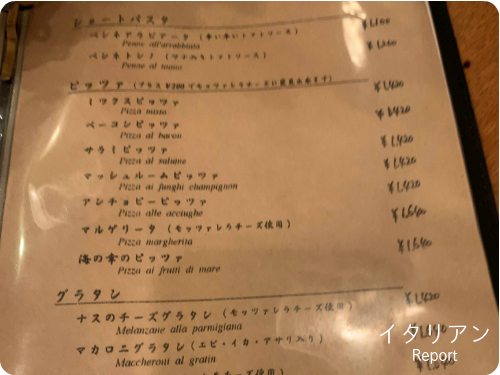 ショートパスタ
ペンネアラビアータ (辛い辛いトマトソース) ¥1,150
Penne all'arrabbiata
ペンネトンノ (ツナ入りトマトソース)
Penne al tonno
ピッツァ (プラス¥200でモッツァレラチーズに変更出来ます) ¥1,420
ミックスピッツァ ¥1,420
Pizza mista
ベーコンピッツァ ¥1,420
Pizza al bacon
サラミピッツァ ¥1,420
Pizza al salame
マッシュルームピッツァ ¥1,420
Pizza ai funghi champignon
アンチョビーピッツァ ¥1,640
Pizza alle acciughe
マルゲリータ (モッツァレラチーズ使用) ¥1,640
Pizza margherita
海の幸のピッツァ
Pizza ai frutti di mare
グラタン
ナスのチーズグラタン (モッツァレラチーズ使用) ¥1,420
Melanzane alla parmigiana
マカロニグラタン (エビ・イカ・アサリ入り)
Maccheroni al gratin
チーズ使用)
イタリアン
Report